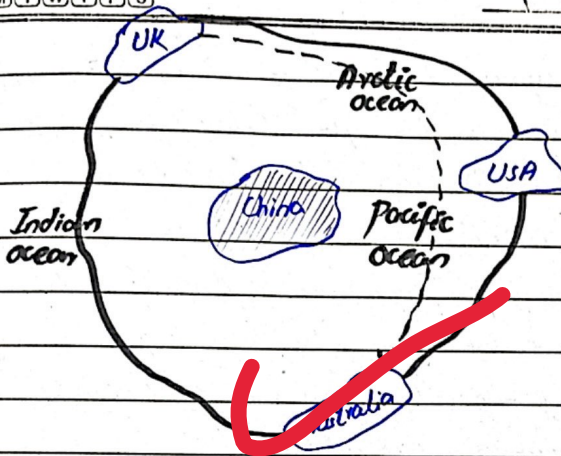 UK
Arctic
ocean
USA
China
Indian
ocean
Pacific
ocean
Australia